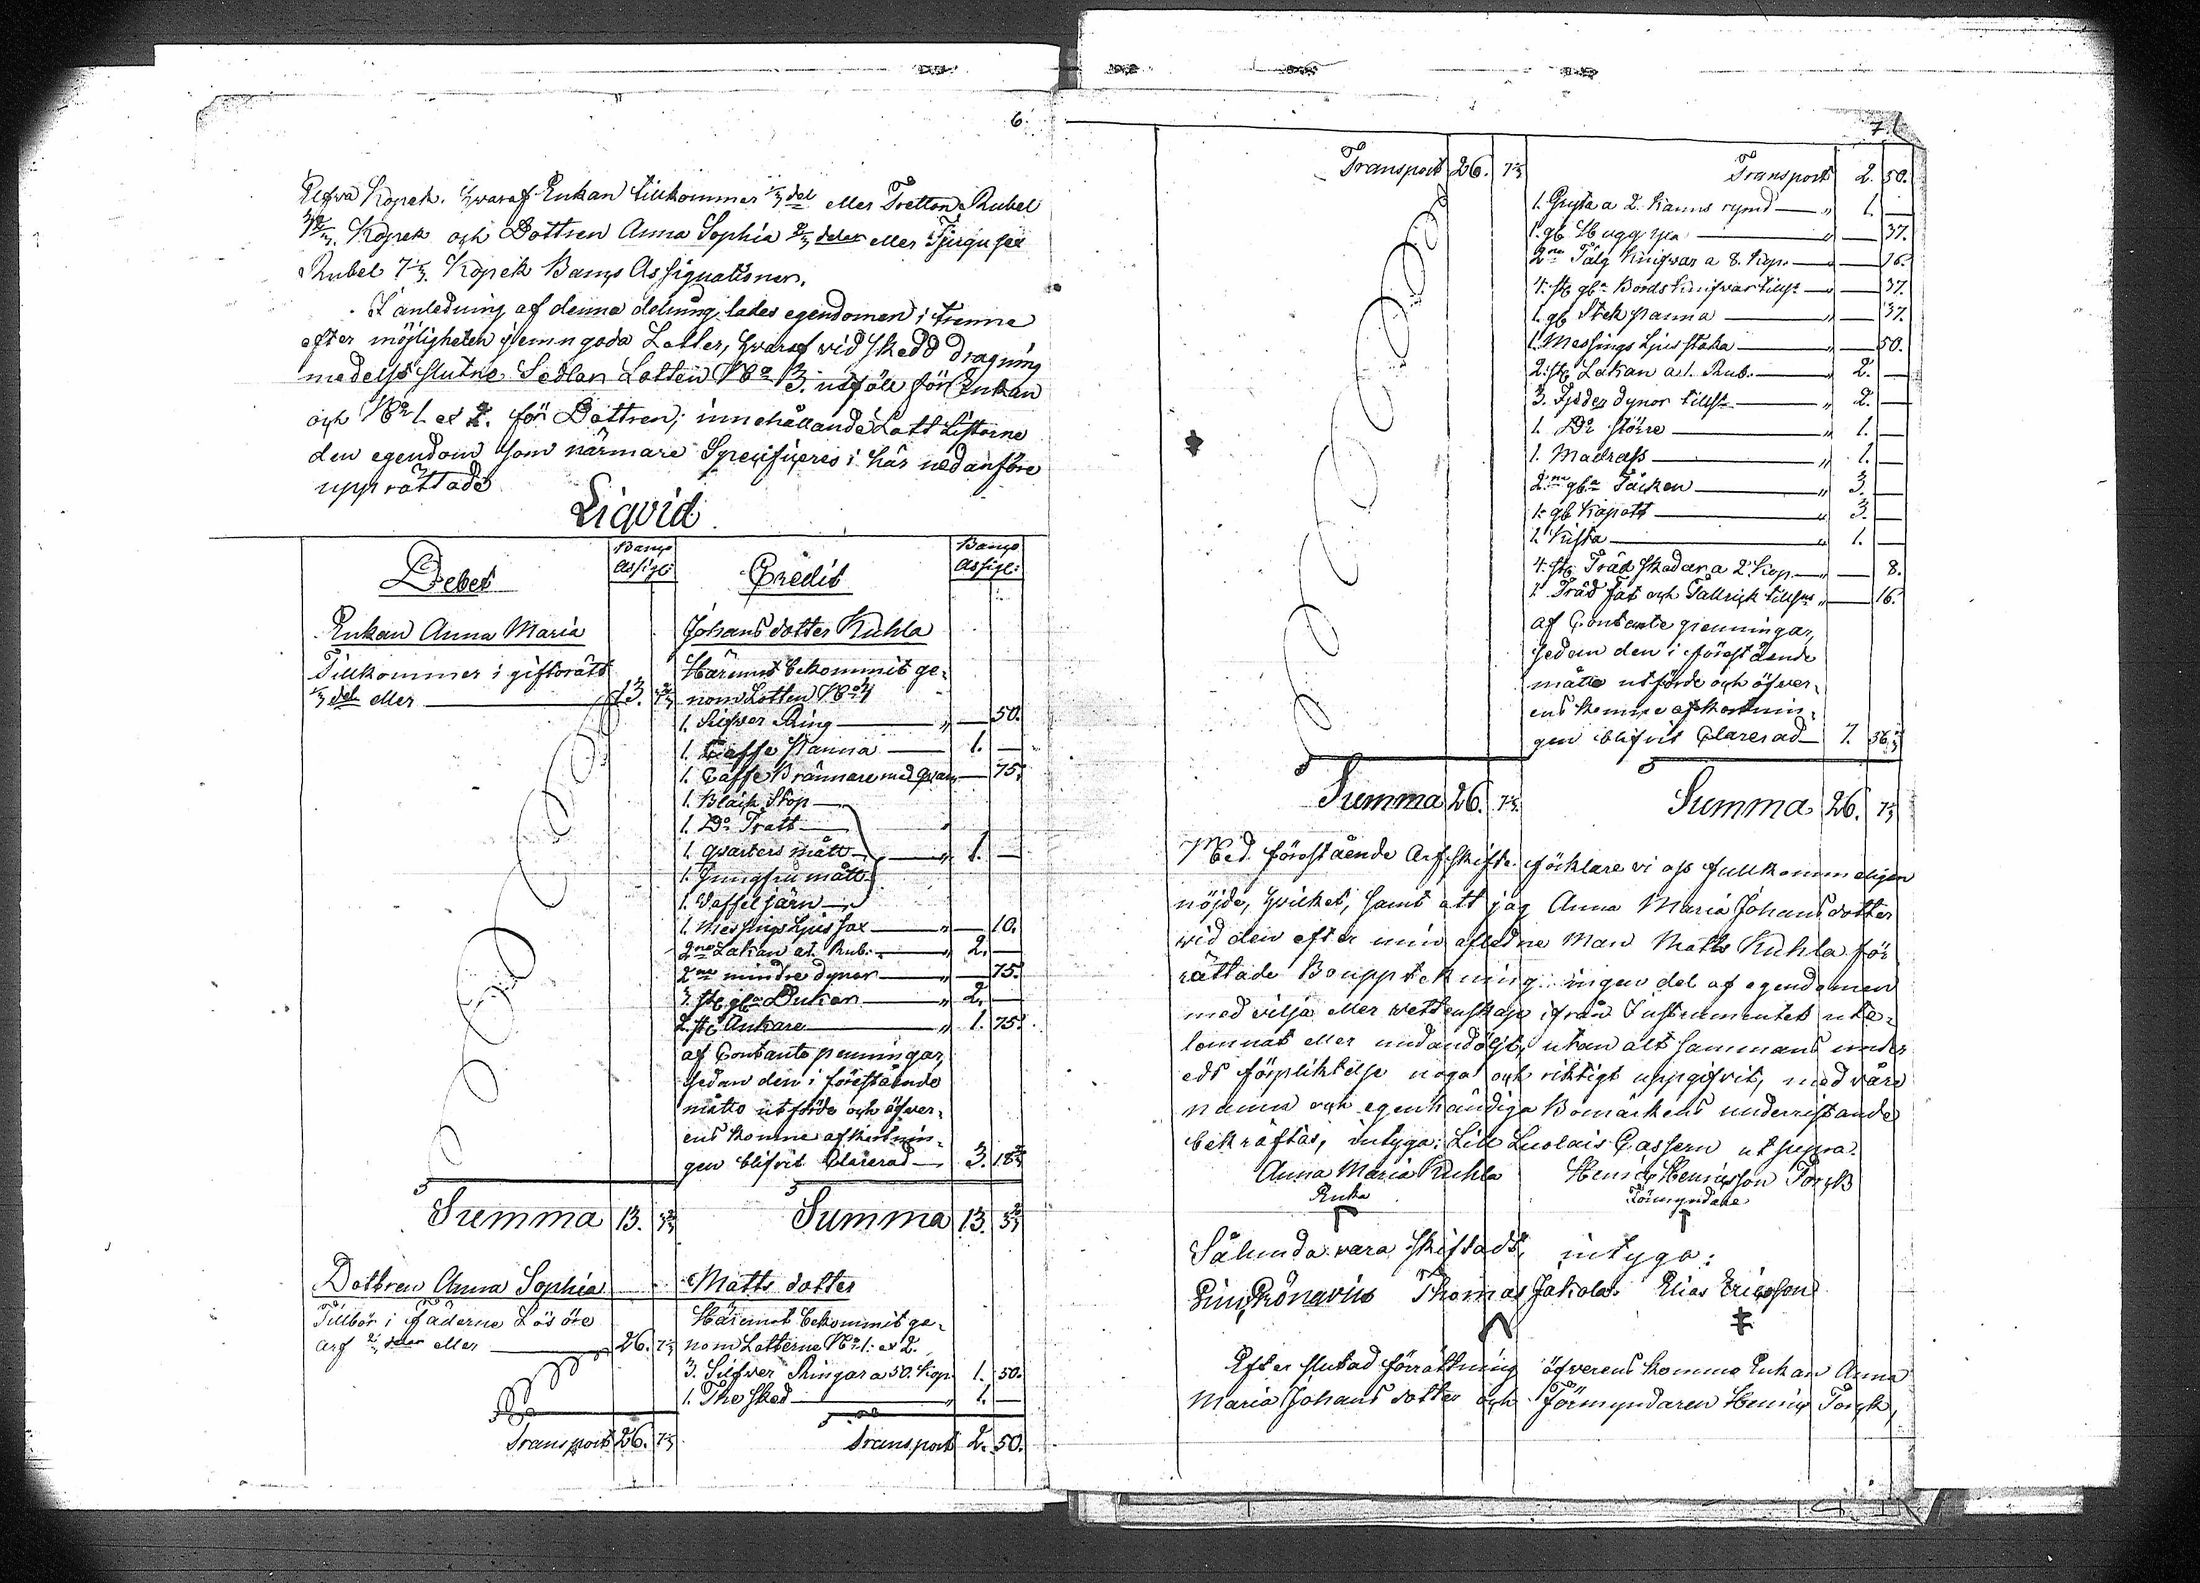 6.
Elfva Kopek. hvaraf Enkan tillkommer 1/3 del eller Tretton Rubel
3 2/3 Kopek och Dottren Anna Sophia 2/3 delar eller Tjugu sex
Rubel 7 1/3 Kopek Banco Assignationer.
I anledning af denna delning lades egendomen i trenne
efter möjligheten jemngoda Lotter, hvaraf vid skedd dragning
medelst slutne Sedlar Lotten No 3. utföll för Enkan
och No 1. et 2. för Dottren; innehållande Lott Listorne
den egendom som närmare Specificeres i här nedanföre
upprättade
Liqvid.
Debet Banco Assign: Credit Banco Assign:
Enkan Anna Maria Johans dotter Kuhla
Tillkommer i giftorätt Häremot bekommit ge-
1/3 del eller 13. 3 2/3 nom Lotten No 3
1. Silfver Ring " 50.
1. Caffe Kanna 1. —
1. Caffe Brännare med qvarn 75.
1. Bläck Stop
1. Do Tratt
1. qvarters mått " 1. —
1. Jungfru mått
1. Vaffel järn
1. Messings Ljus sax " 10.
2ne Lakan a 1. Rub. " 2. —
2ne mindre dynor " 75.
3. st. gla Dukar " 2. —
2. st. Ankare " 1. 75.
af Contante penningar,
sedan den i förestående
måtto utförde och öfver-
ens komne afkortnin-
gen blifvit Clarerad 3. 18 2/3
Summa 13. 3 2/3 Summa 13. 3 2/3
Dottren Anna Sophia Matts dotter
Tillbör i Fäderne Lösöre Häremot bekommit ge-
arf 2/3 delar eller 26. 7 1/3 nom Lotterne No 1. et 2.
3. Silfver Ringar a 50. Kop. 1. 50.
1. The sked " 1. —
Transport 26. 7 1/3 Transport 2. 50.
7.
Transport 26. 7 1/3 Transport 2. 50.
1. Gryta a 2. Kanns rymd " 1. —
1. gl Hugg yxa " 37.
2ne Tälg Knifvar a 8. Kop. " 16.
4. st. gla Bords Knifvar tills. " 37.
1. gl Stek panna " 37.
1. Messings Ljus staka " 50.
2. st. Lakan a 1. Rub. " 2. —
3. Fjeder dynor tills. " 2. —
1. Do större " 1. —
1. Madrass " 1. —
2ne gla Täcken " 3. —
1. gl Kapott " 3. —
1. Kista " 1. —
4. st. Träd skedar a 2. Kop. " 8.
1. Träd fat och Tallrick tills. " 16.
af Contante penningar,
sedan den i förestående
måtto utförde och öfver-
ens komne afkortnin-
gen blifvit Clarerad 7. 36 1/3
Summa 26. 7 1/3 Summa 26. 7 1/3
Med förestående Arfskifte förklare vi oss fullkommeligen
nöjde, hvilket, samt att jag Anna Maria Johans dotter
vid den efter min afledne Man Matts Kuhla för
rättade Bouppteckning ingen del af egendomen
med vilja eller vettenskap ifrån Instrumentet ute-
lemnat eller undandöljt, utan alt sammans under
eds förpliktelse noga och riktigt uppgifvit, med våre
namns och egenhändiga Bomärkens underristande
bekräftas, intyga: Lill Luolais Gassern ut supra.
Anna Maria Kuhla Henric Henricsson Torck
Enka Förmyndare
Sålunda vara skiftadt, intyga:
Thomas Jakola. Elias Ericsson
Efter slutad förrättning öfverens komma Enkan Anna
Maria Johans dotter och Förmyndaren Henric Torck,